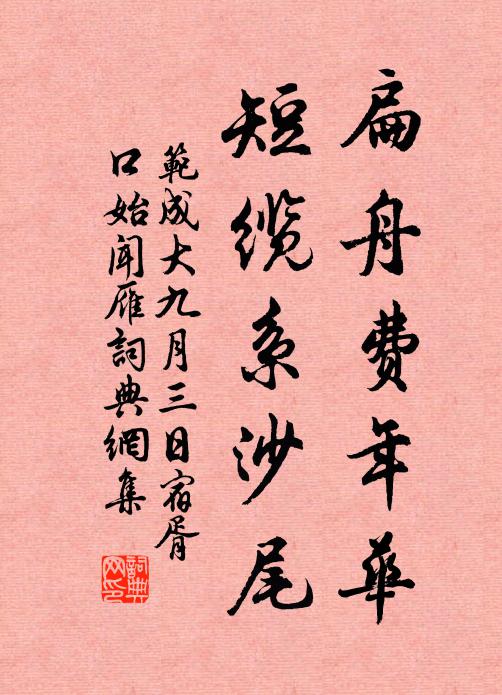 扁舟費年華
短纜系沙尾
範成大九月三日宿胥
口始闻雁詞典網集
詞典
网印